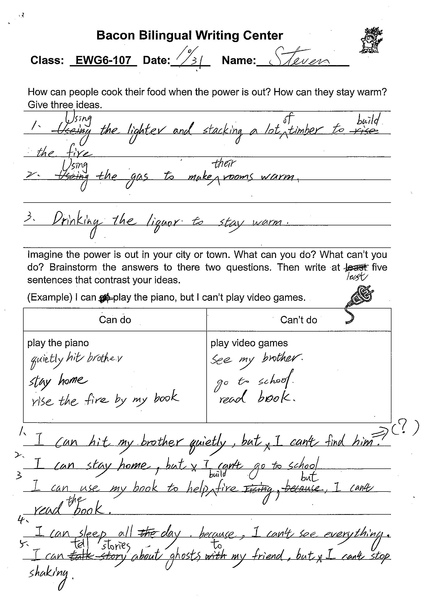 Bacon Bilingual Writing Center
Class: EWG6-107 Date: 10/31 Name: Steven
How can people cook their food when the power is out? How can they stay warm?
Give three ideas.
Using of build
1. Useing the lighter and stacking a lot timber to rise
the fire
Using their
2. Useing the gas to make rooms warm.
3. Drinking the liquor to stay warm.
Imagine the power is out in your city or town. What can you do? What can't you
do? Brainstorm the answers to there two questions. Then write at least five
least
sentences that contrast your ideas.
(Example) I can play the piano, but I can't play video games.
Can do Can't do
play the piano play video games
quietly hit brother see my brother.
stay home go to school.
rise the fire by my book read book.
1. I can hit my brother quietly, but I can't find him. (?)
2. I can stay home, but I can't go to school
build but
3 I can use my book to help fire rising, because, I can't
the
read book.
4. I can sleep all the day. because, I can't see everything.
tell stories to
5. I can talk story about ghosts with my friend, but I can't stop
shaking.